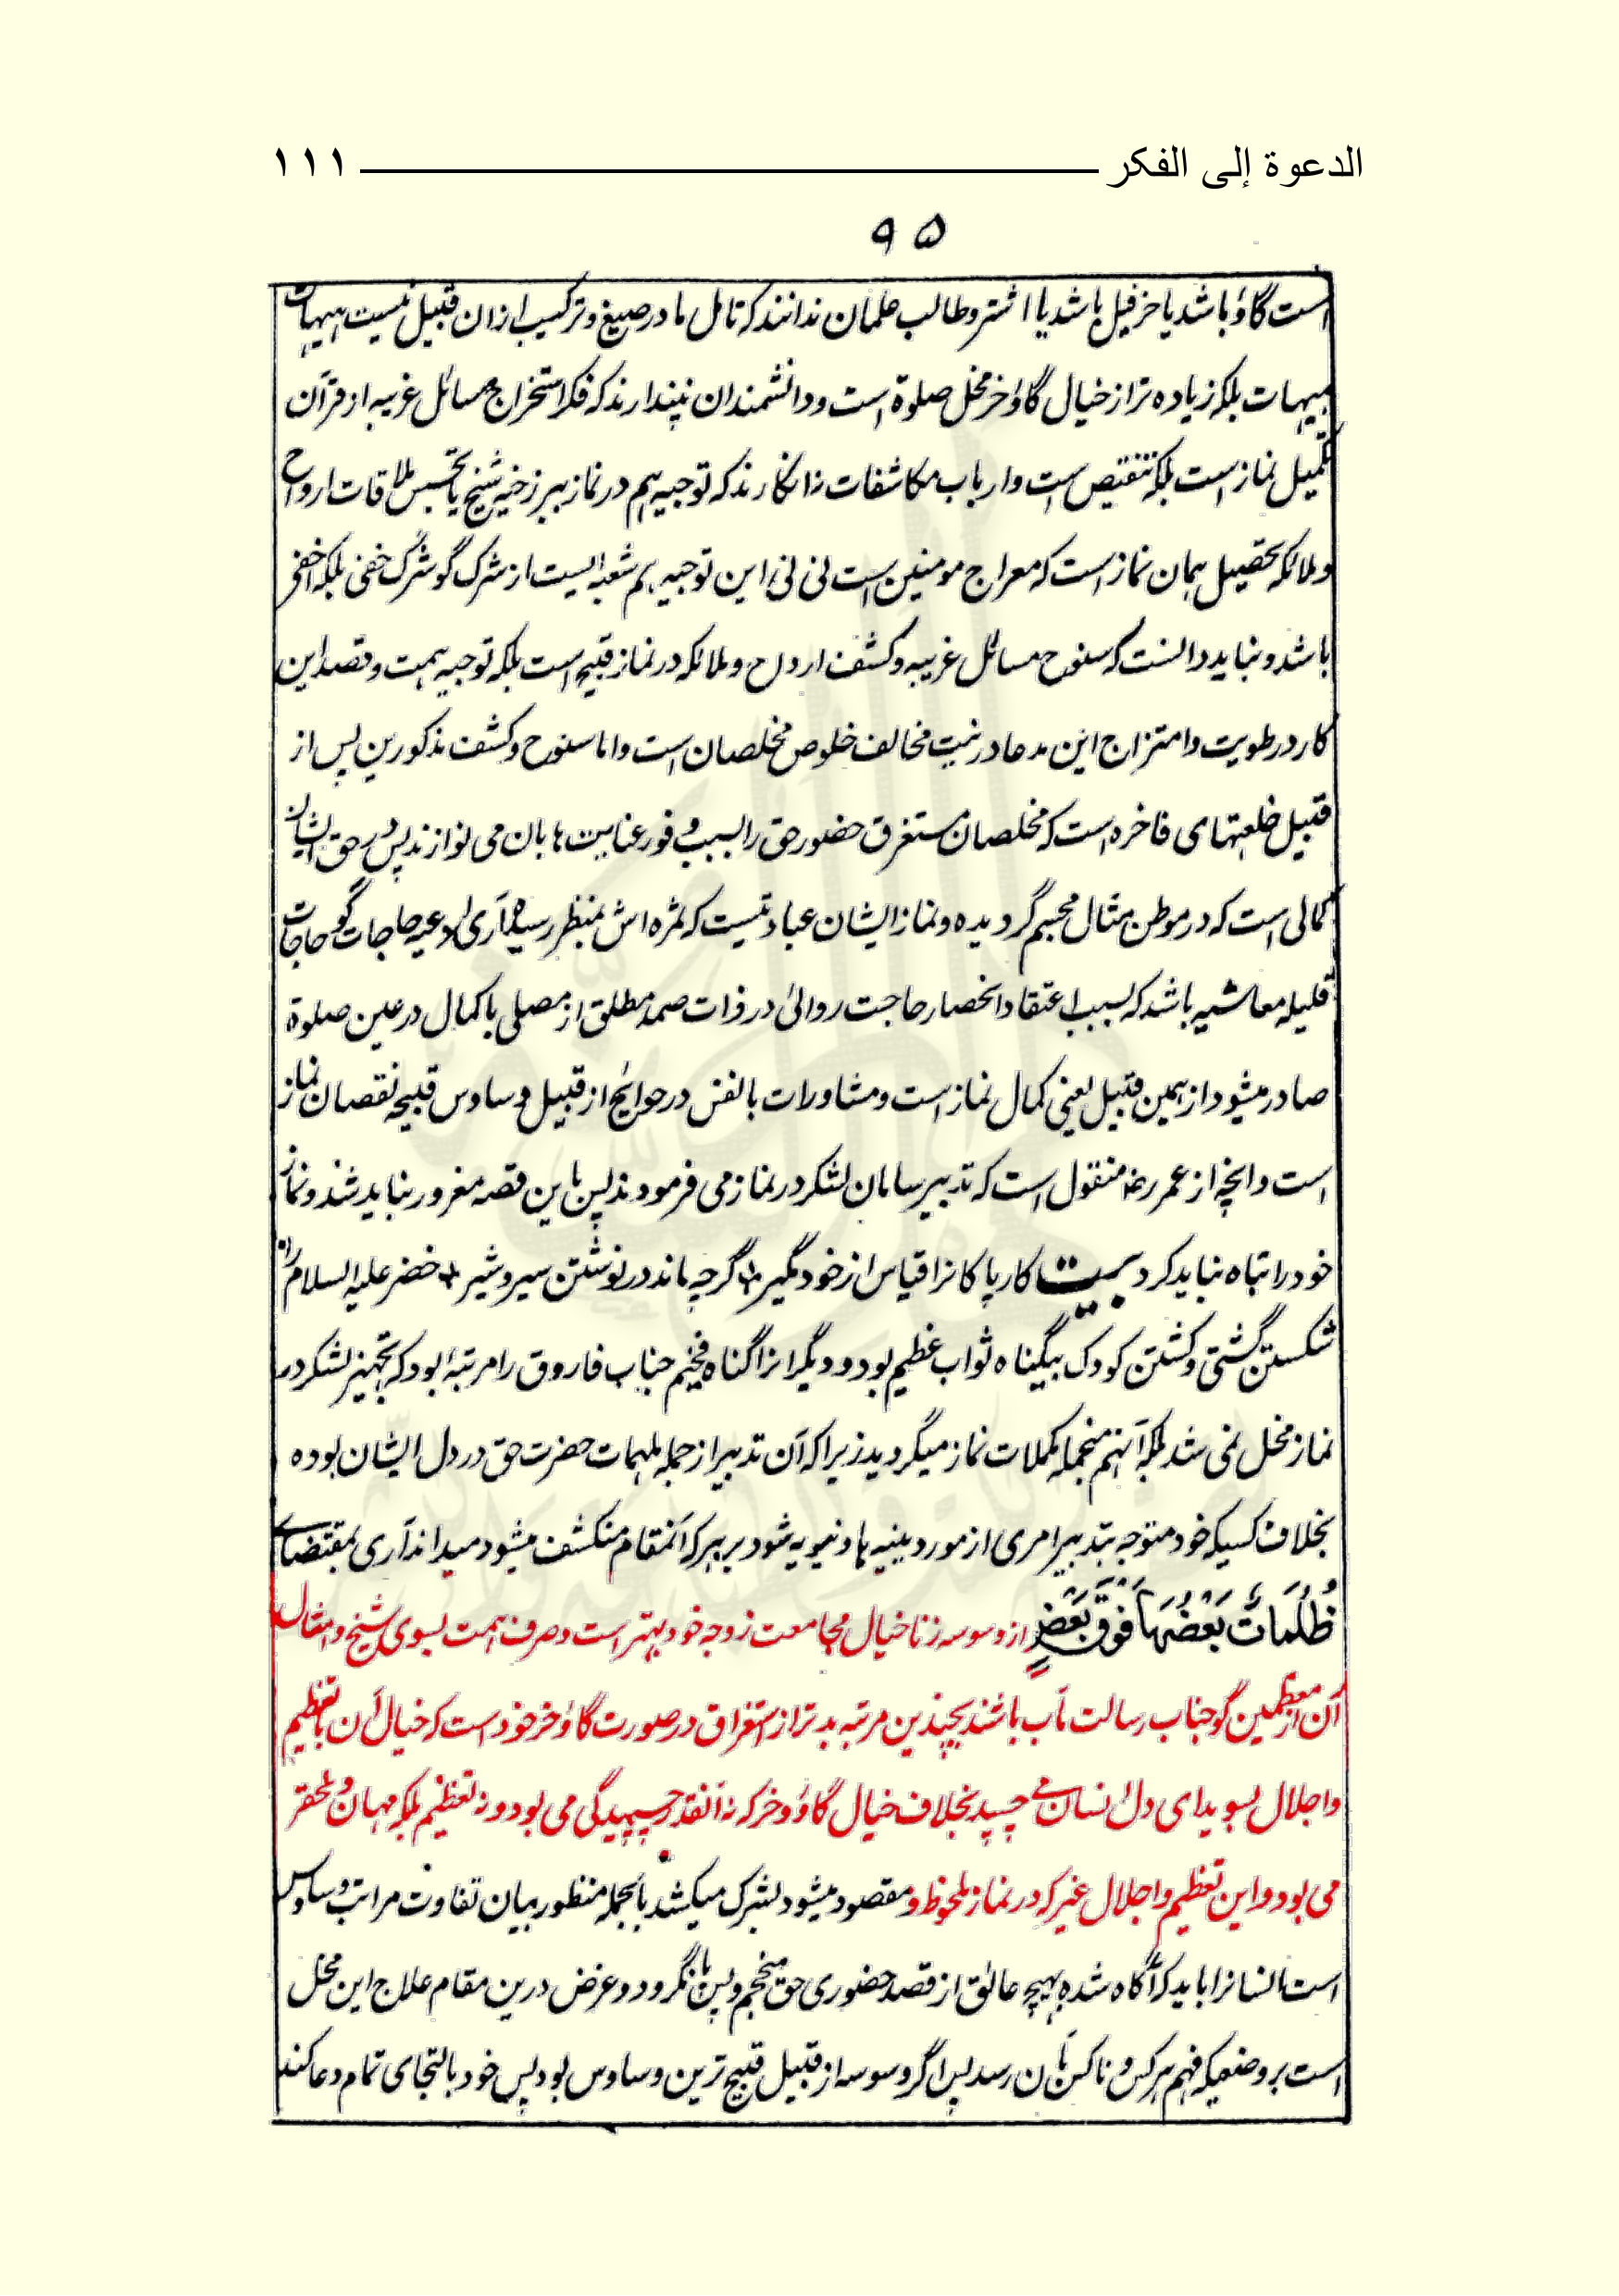 الدعوة إلى الفكر ١١١
٩٥
است گاؤ باشد یا خر فیل باشد یا اشتر و طالب علمان ندانند که تامل ما در صیغ و ترکیب ازان قبیل نیست هیهات
هیهات بلکه زیاده تر از خیال گاؤ خر مخل صلوة است و دانشمندان نپندارند که فکر استخراج مسائل غریبه از قرآن
تکمیل نماز است بلکه تنقیص است و ارباب مکاشفات نه انگارند که توجیه هم در نماز ببرزخیه شیخ یا تجسس ملاقات ارواح
و ملائکه تحصیل همان نماز است که معراج مومنین است نی نی این توجیه هم شعبه ایست از شرک گو شرک خفی بلکه اخفی
باشد و نباید دانست که سنوح مسائل غریبه و کشف ارواح و ملائکه در نماز قبیح است بلکه توجیه همت و قصد این
کار در طویت و امتزاج این مدعا در نیت مخالف خلوص مخلصان است و اما سنوح و کشف مذکورین پس از
قبیل خلعتهای فاخره است که مخلصان مستغرق حضور حق را بسبب وفور عنایت ها بان می نوازند پس در حق ایشان
کمالی است که در موطن مثال مجسم گردیده و نماز ایشان عبادتیست که ثمره اش بمنظر رسیده آری ادعیه حاجات گو حاجات
قلیله معاشیه باشد که بسبب اعتقاد انحصار حاجت روائی در ذات صمد مطلق از مصلی با کمال در عین صلوة
صادر میشود از همین قبیل یعنی کمال نماز است و مشاورات با نفس در حوائج از قبیل وساوس قبیحه نقصان نماز
است و انچه از عمر رضه منقول است که تدبیر سامان لشکر در نماز می فرمودند پس باین قصه مغرور نباید شد و نماز
خود را تباه نباید کرد بیت کار پاکانرا قیاس از خود مگیر گرچه ماند در نوشتن سیر و شیر خضر علیه السلام را
شکستن کشتی و کشتن کودک بیگناه ثواب عظیم بود و دیگرانرا گناه فخیم جناب فاروق را مرتبهٔ بود که تجهیز لشکر در
نماز مخل نمی شد بلکه آنهم منجمله مکملات نماز میگردید زیرا که آن تدبیر از جمله ملهمات حضرت حق در دل ایشان بوده
بخلاف کسیکه خود متوجه بتدبیر امری از امور دینیه یا دنیویه شود بر هر که آنمقام منکشف میشود میداند آری بمقتضای
ظُلُمَاتٌ بَعْضُهَا فَوْقَ بَعْضٍ از وسوسه زنا خیال مجامعت زوجه خود بهتر است و صرف همت بسوی شیخ و امثال
آن از معظمین گو جناب رسالت مآب باشند بچندین مرتبه بدتر از استغراق در صورت گاؤ خر خود است که خیال آن با تعظیم
و اجلال بسویدای دل انسان می چسپد بخلاف خیال گاؤ و خر که نه آنقدر چسپیدگی می بود و نه تعظیم بلکه مهان و محقر
می بود و این تعظیم و اجلال غیر که در نماز ملحوظ و مقصود میشود بشرک میکشد بالجمله منظور بیان تفاوت مراتب وساوس
است انسانرا باید که آگاه شده بهیچ عائق از قصد حضوری حق و پس پا نگرود و غرض درین مقام علاج این مخل
است بر وضعیکه فهم هر کس و ناکس بان رسد پس اگر وسوسه از قبیل قبیح ترین وساوس بود پس خود بالتجای تمام دعا کند